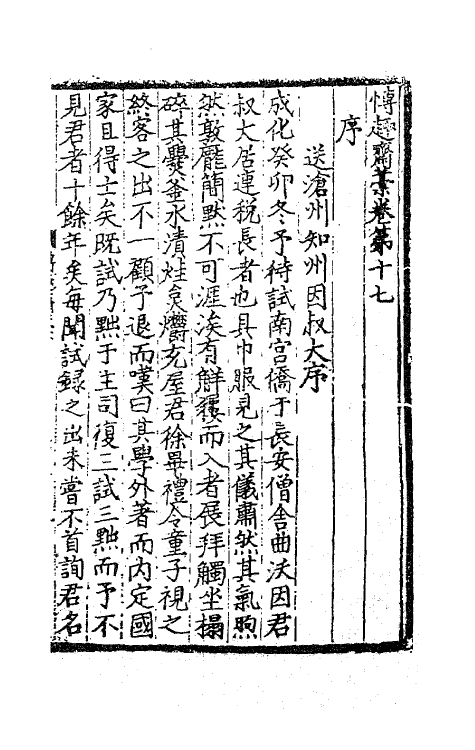 博趣齋藁卷第十七
序
送滄州知州因叔大序
成化癸卯冬予待試南宮僑于長安僧舍曲沃因君
叔大居連稅長者也具巾服見之其儀肅然其氣煦
然敦龐簡默不可涯涘有觧玃而入者展拜觸坐榻
碎其爨釜水漬烓炱爝充屋君徐畢禮令童子視之
終客之出不一顧予退而嘆曰其學外著而內定國
家且得士矣既試乃黜于主司復三試三黜而予不
見君者十餘年矣每聞試錄之出未嘗不首詢君名